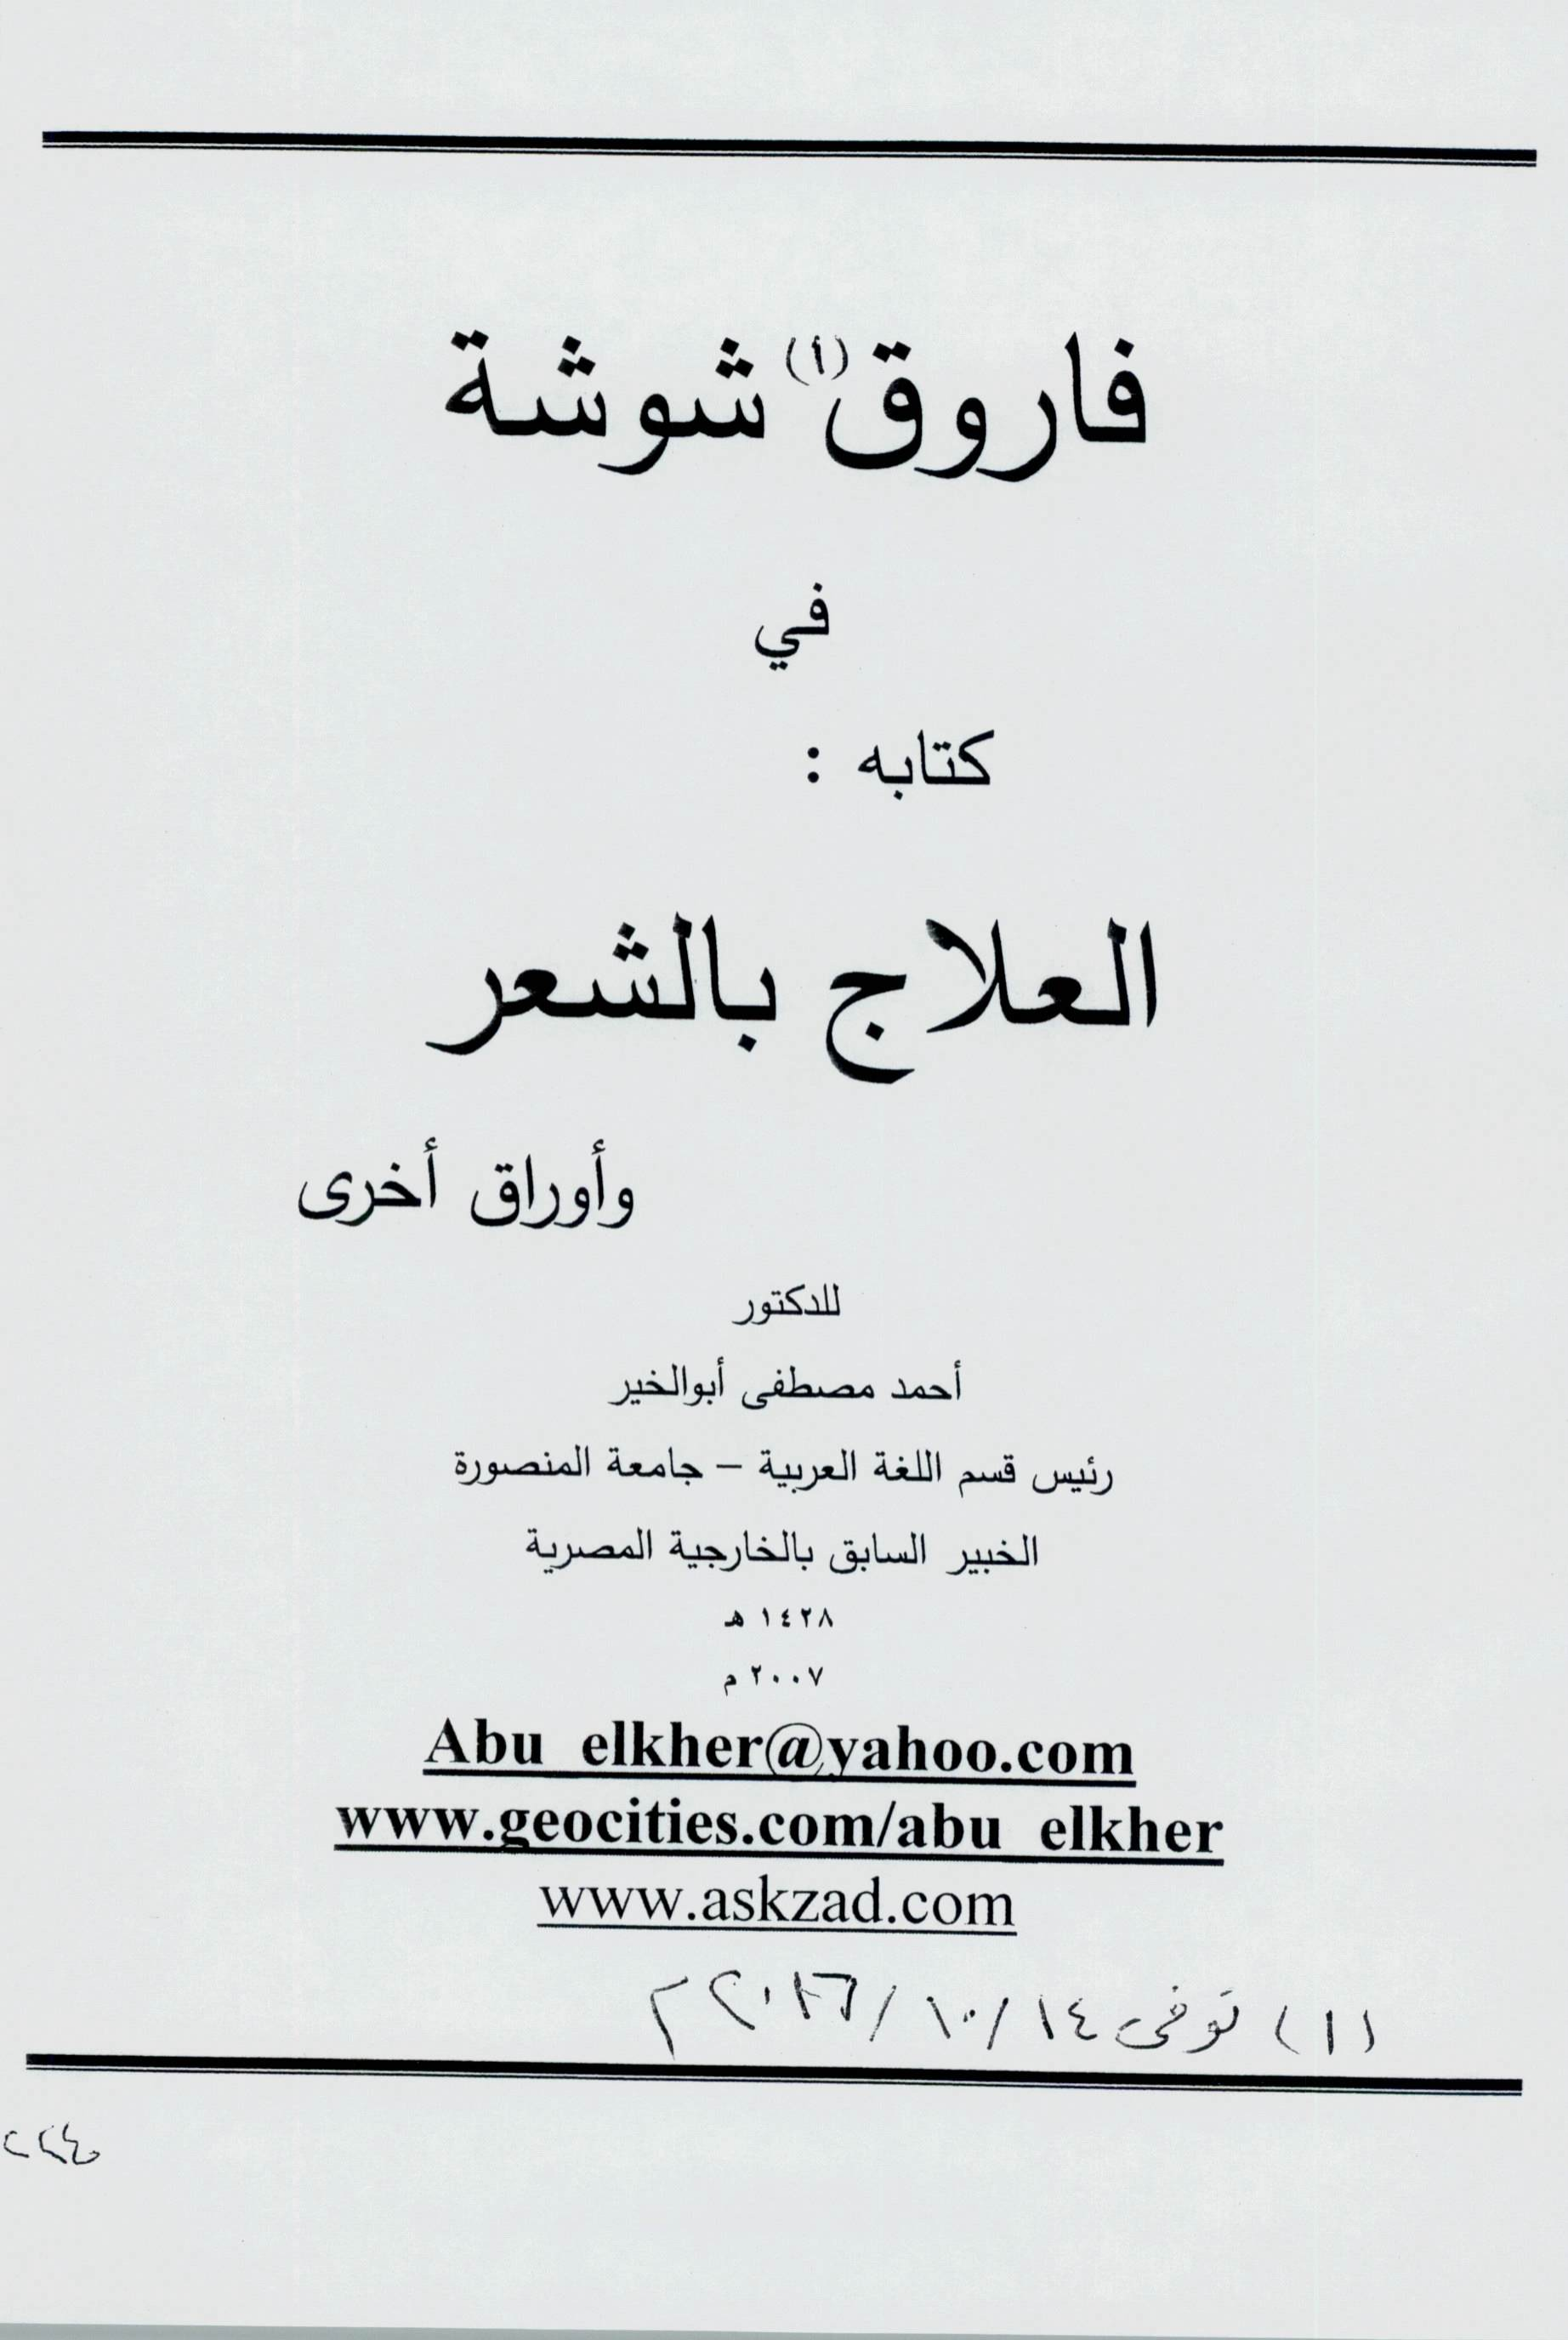 فاروق(١) شوشة
في
كتابه :
العلاج بالشعر
وأوراق أخرى
للدكتور
أحمد مصطفى أبوالخير
رئيس قسم اللغة العربية – جامعة المنصورة
الخبير السابق بالخارجية المصرية
١٤٢٨ هـ
٢٠٠٧ م
Abu_elkher@yahoo.com
www.geocities.com/abu_elkher
www.askzad.com
(١) توفى ١٤/١٠/٢٠١٦م